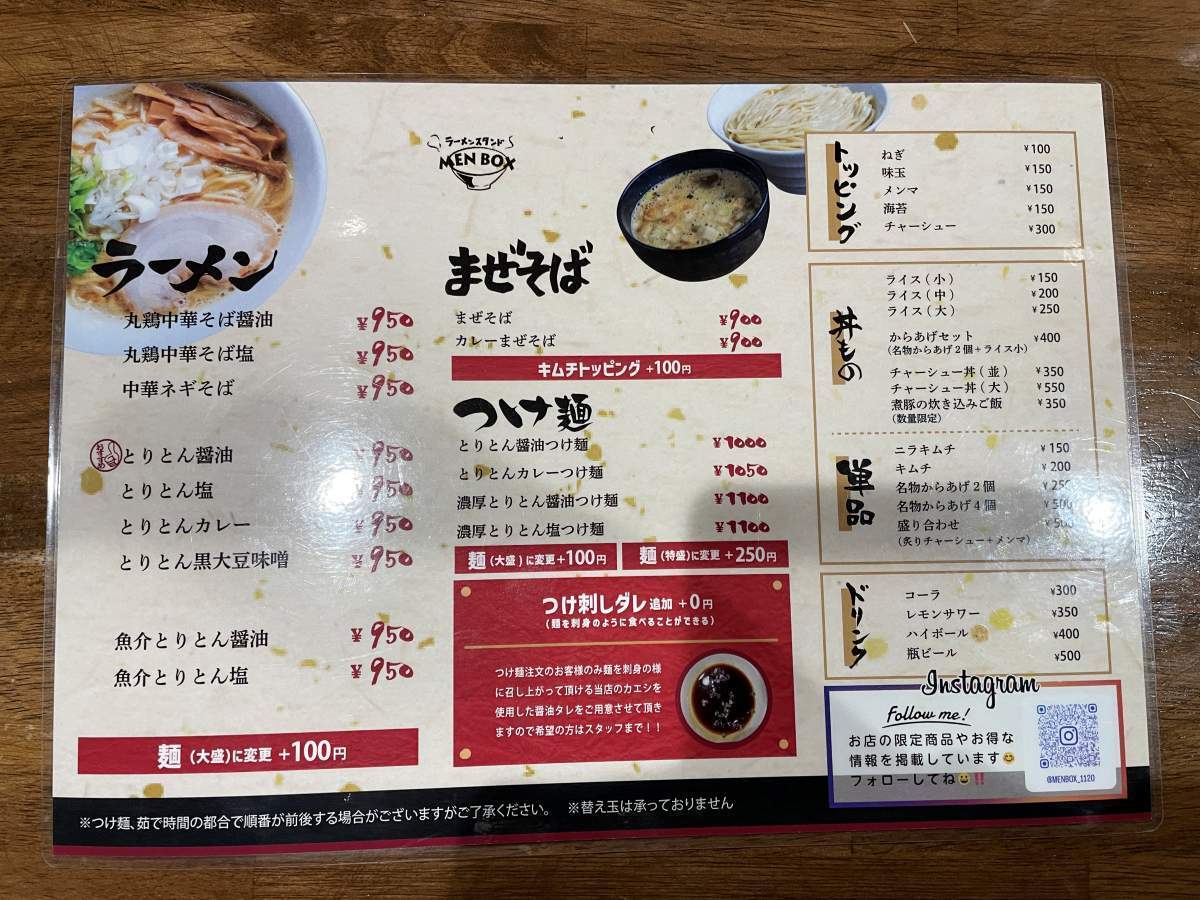 ラーメンスタンド
MEN BOX
ラーメン
丸鶏中華そば醤油 ¥950
丸鶏中華そば塩 ¥950
中華ネギそば ¥950
おすすめ
とりとん醤油 ¥950
とりとん塩 ¥950
とりとんカレー ¥950
とりとん黒大豆味噌 ¥950
魚介とりとん醤油 ¥950
魚介とりとん塩 ¥950
麺(大盛)に変更 +100円
まぜそば
まぜそば ¥900
カレーまぜそば ¥900
キムチトッピング +100円
つけ麺
とりとん醤油つけ麺 ¥1000
とりとんカレーつけ麺 ¥1050
濃厚とりとん醤油つけ麺 ¥1100
濃厚とりとん塩つけ麺 ¥1100
麺(大盛)に変更+100円
麺(特盛)に変更+250円
つけ刺しダレ 追加 +0円
(麺を刺身のように食べることができる)
つけ麺注文のお客様のみ麺を刺身の様
に召し上がって頂ける当店のカエシを
使用した醤油タレをご用意させて頂き
ますので希望の方はスタッフまで!!
トッピング
ねぎ ¥100
味玉 ¥150
メンマ ¥150
海苔 ¥150
チャーシュー ¥300
丼もの
ライス(小) ¥150
ライス(中) ¥200
ライス(大) ¥250
からあげセット ¥400
(名物からあげ2個+ライス小)
チャーシュー丼(並) ¥350
チャーシュー丼(大) ¥550
煮豚の炊き込みご飯 ¥350
(数量限定)
単品
ニラキムチ ¥150
キムチ ¥200
名物からあげ2個 ¥250
名物からあげ4個 ¥500
盛り合わせ ¥500
(炙りチャーシュー+メンマ)
ドリンク
コーラ ¥300
レモンサワー ¥350
ハイボール ¥400
瓶ビール ¥500
Instagram
Follow me!
お店の限定商品やお得な
情報を掲載しています😊
フォローしてね😄‼️
@MENBOX_1120
※つけ麺、茹で時間の都合で順番が前後する場合がございますがご了承ください。 ※替え玉は承っておりません